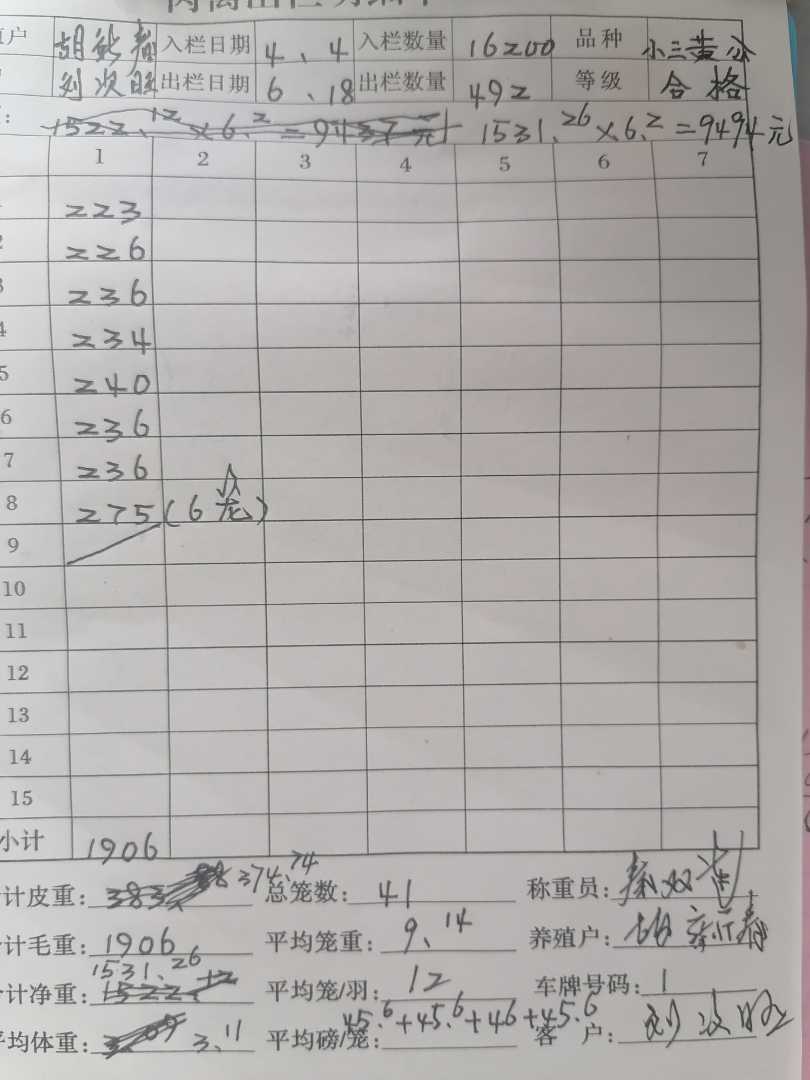 户 胡 春 入栏日期 4、4 入栏数量 16200 品种 小三黄公
刘次旺 出栏日期 6、18 出栏数量 492 等级 合格
1522.12×6.2=9437元 1531.26×6.2=9494元
1 2 3 4 5 6 7
223
2 226
3 236
4 234
5 240
6 236
7 236
8 275(6只笼)
9
10
11
12
13
14
15
小计 1906
计皮重: 383. 88 374.74 总笼数: 41 称重员:
计毛重: 1906 平均笼重: 9、14 养殖户:
计净重: 1522.12 1531.26 平均笼/羽: 12 车牌号码: 1
平均体重: 3.09 3.11 平均磅/笼: 45.6+45.6+46+45.6 客 户: 刘次旺